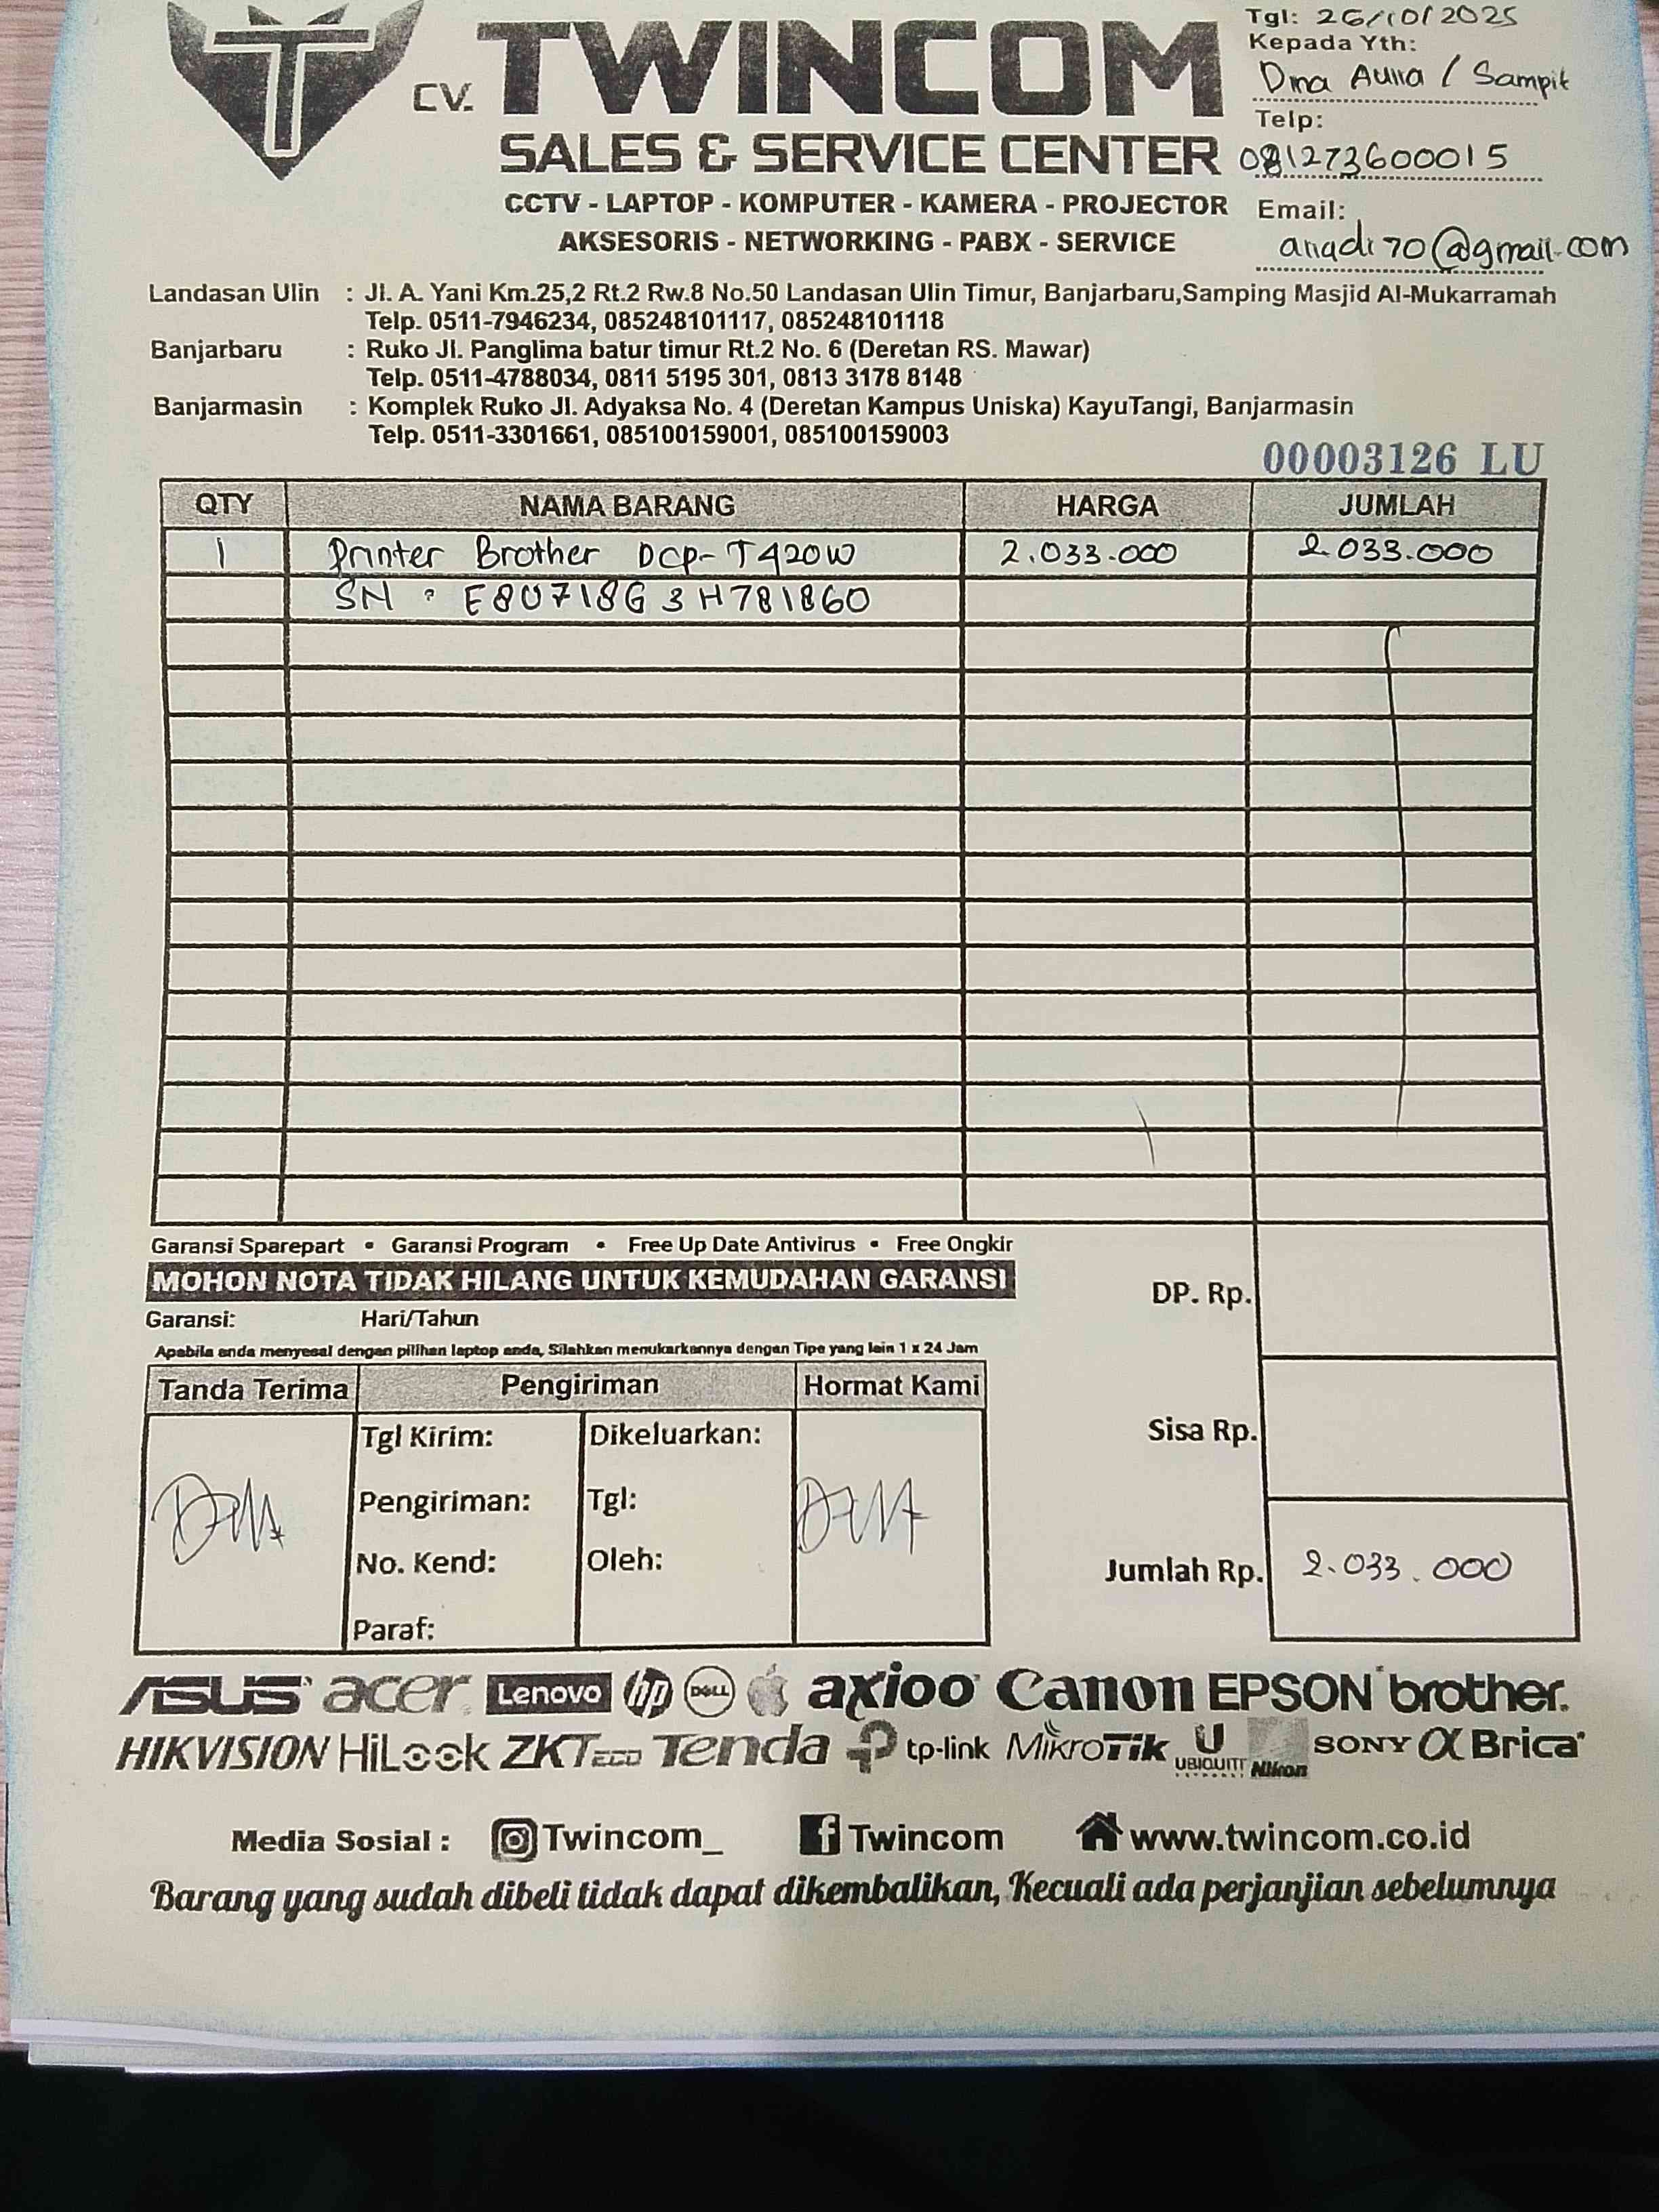 CV. TWINCOM
SALES & SERVICE CENTER
CCTV - LAPTOP - KOMPUTER - KAMERA - PROJECTOR
AKSESORIS - NETWORKING - PABX - SERVICE
Tgl: 26/10/2025
Kepada Yth:
Dina Aulia / Sampit
Telp:
081273600015
Email:
70@gmail.com
Landasan Ulin : Jl. A. Yani Km.25,2 Rt.2 Rw.8 No.50 Landasan Ulin Timur, Banjarbaru,Samping Masjid Al-Mukarramah
Telp. 0511-7946234, 085248101117, 085248101118
Banjarbaru : Ruko Jl. Panglima batur timur Rt.2 No. 6 (Deretan RS. Mawar)
Telp. 0511-4788034, 0811 5195 301, 0813 3178 8148
Banjarmasin : Komplek Ruko Jl. Adyaksa No. 4 (Deretan Kampus Uniska) KayuTangi, Banjarmasin
Telp. 0511-3301661, 085100159001, 085100159003
00003126 LU
QTY NAMA BARANG HARGA JUMLAH
1 Printer Brother DCP-T420W 2.033.000 2.033.000
SN : E80718G3H781860
Garansi Sparepart • Garansi Program • Free Up Date Antivirus • Free Ongkir
MOHON NOTA TIDAK HILANG UNTUK KEMUDAHAN GARANSI
Garansi: Hari/Tahun
Apabila anda menyesal dengan pilihan laptop anda, Silahkan menukarkannya dengan Tipe yang lain 1 x 24 Jam
DP. Rp.
Tanda Terima Pengiriman Hormat Kami
Tgl Kirim: Dikeluarkan:
Sisa Rp.
Pengiriman: Tgl:
No. Kend: Oleh:
Jumlah Rp. 2.033.000
Paraf:
ASUS acer Lenovo hp DELL axioo Canon EPSON brother
HIKVISION HiLook ZKTeco Tenda tp-link MikroTik U UBIQUITI NETWORKS Nikon SONY α Brica
Media Sosial : Twincom_ Twincom www.twincom.co.id
Barang yang sudah dibeli tidak dapat dikembalikan, Kecuali ada perjanjian sebelumnya